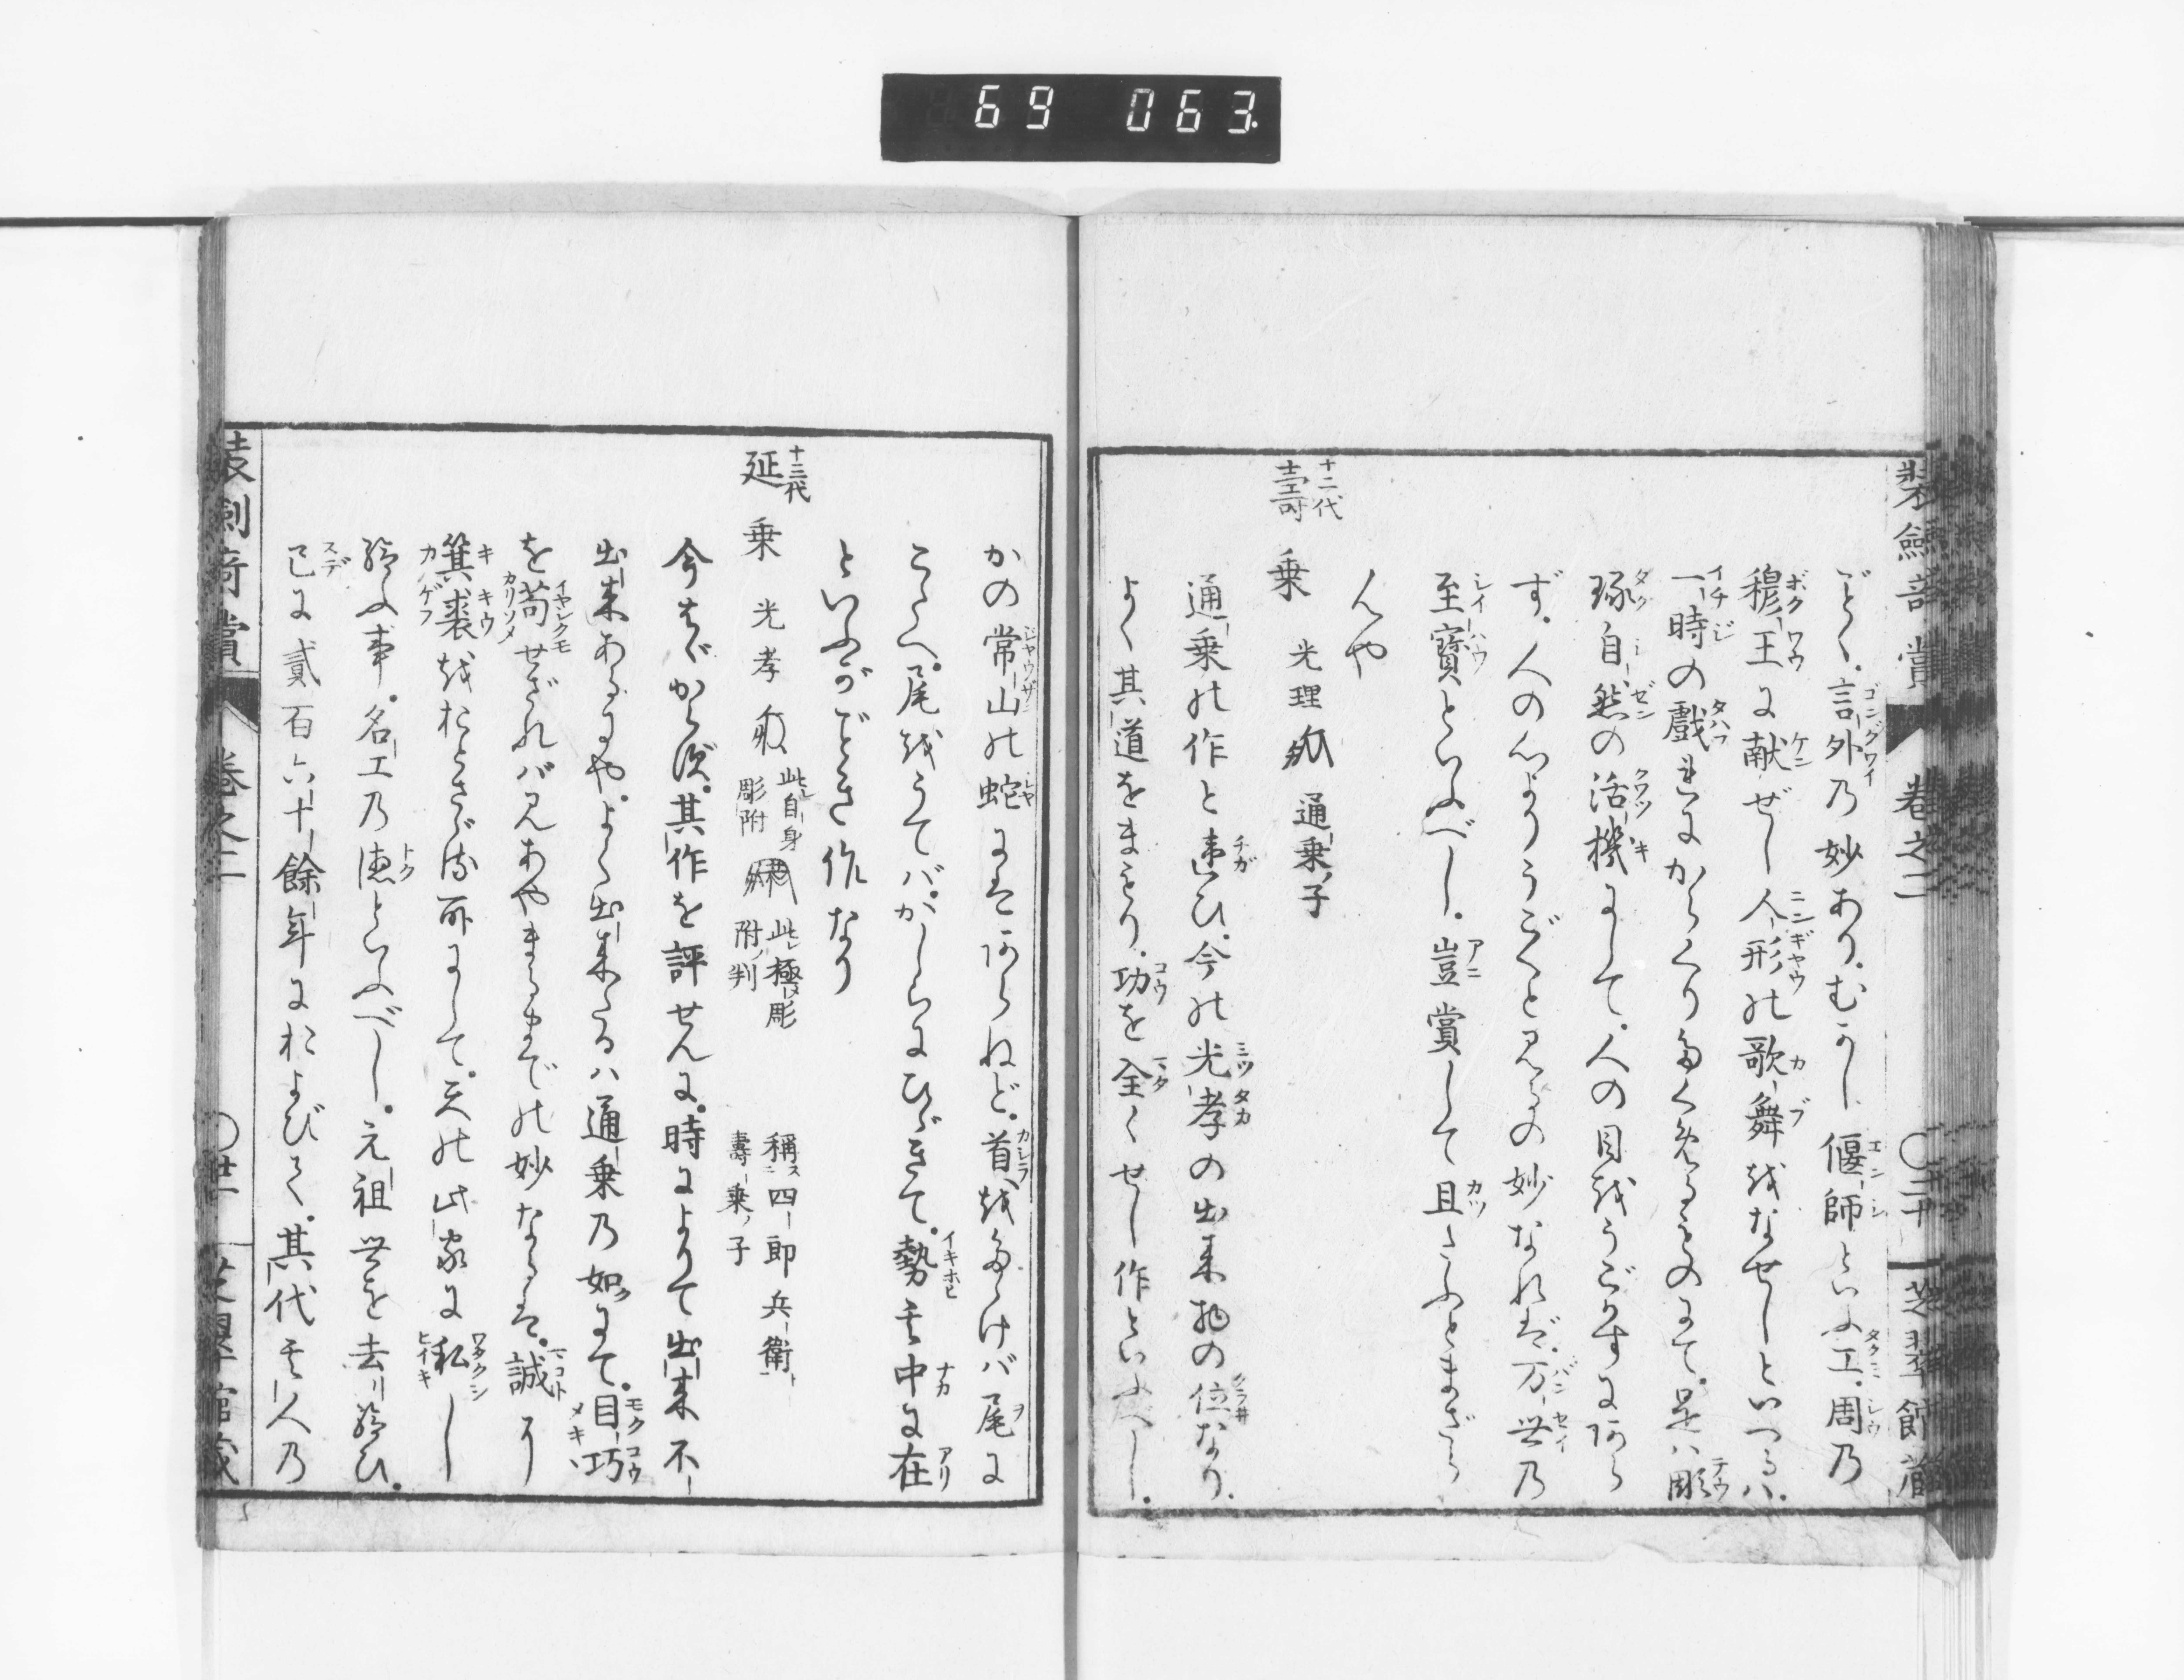 69 063
どく。言外乃妙あり。むかし偃師といふ工。周乃
穆王に献ぜし人形の歌舞をなせしといつるハ。
一時の戯れにからくりたくめるものにて。是ハ彫
琢自然の活機にして。人の目をうごかすにあら
ず。人の心よりうごくと見るの妙なれば。万世乃
至寳といふべし。豈賞して且たふとまざら
んや
十二代
壽乗 光理 通乗ノ子
通乗の作と違ひ。今の光孝の出来物の位なり。
よく其道をまもり。功を全くせし作といふべし。
かの常山の蛇にはあらねど。首をたゝけバ尾に
こたへ。尾をうてバ。かしらにひゞきて。勢ひ中に在
といふがごとき作なり
十三代
延乗 光孝 此レ自身彫附 此レ極メ彫附ノ判 稱ス四郎兵衛ト 壽乗ノ子
今はゞからず。其作を評せんに。時によりて出来不
出来あるにや。よく出来たるハ通乗乃如にて。目巧
を苟せざれバ見あやまるまでの妙なるは。誠に
箕裘をおとさゞる所にして。天の此家に私し
給ふ事。名工乃徳といふべし。元祖世を去給ひ。
已に貳百六十餘年におよびて。其代々人乃
装劍奇賞 巻之二 芝翠館蔵